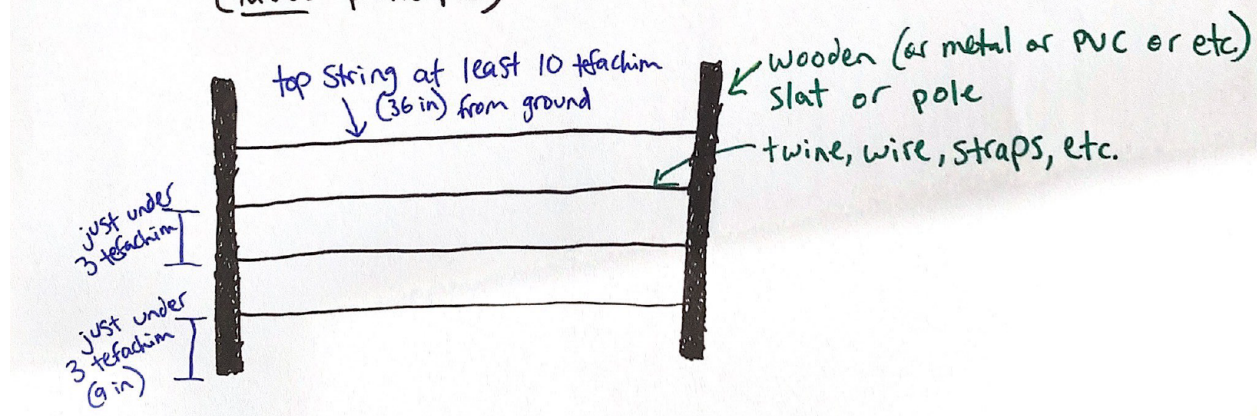 top string at least 10 tefachim
(36 in) from ground
wooden (or metal or PVC or etc)
slat or pole
twine, wire, straps, etc.
just under
3 tefachim
just under
3 tefachim
(9 in)